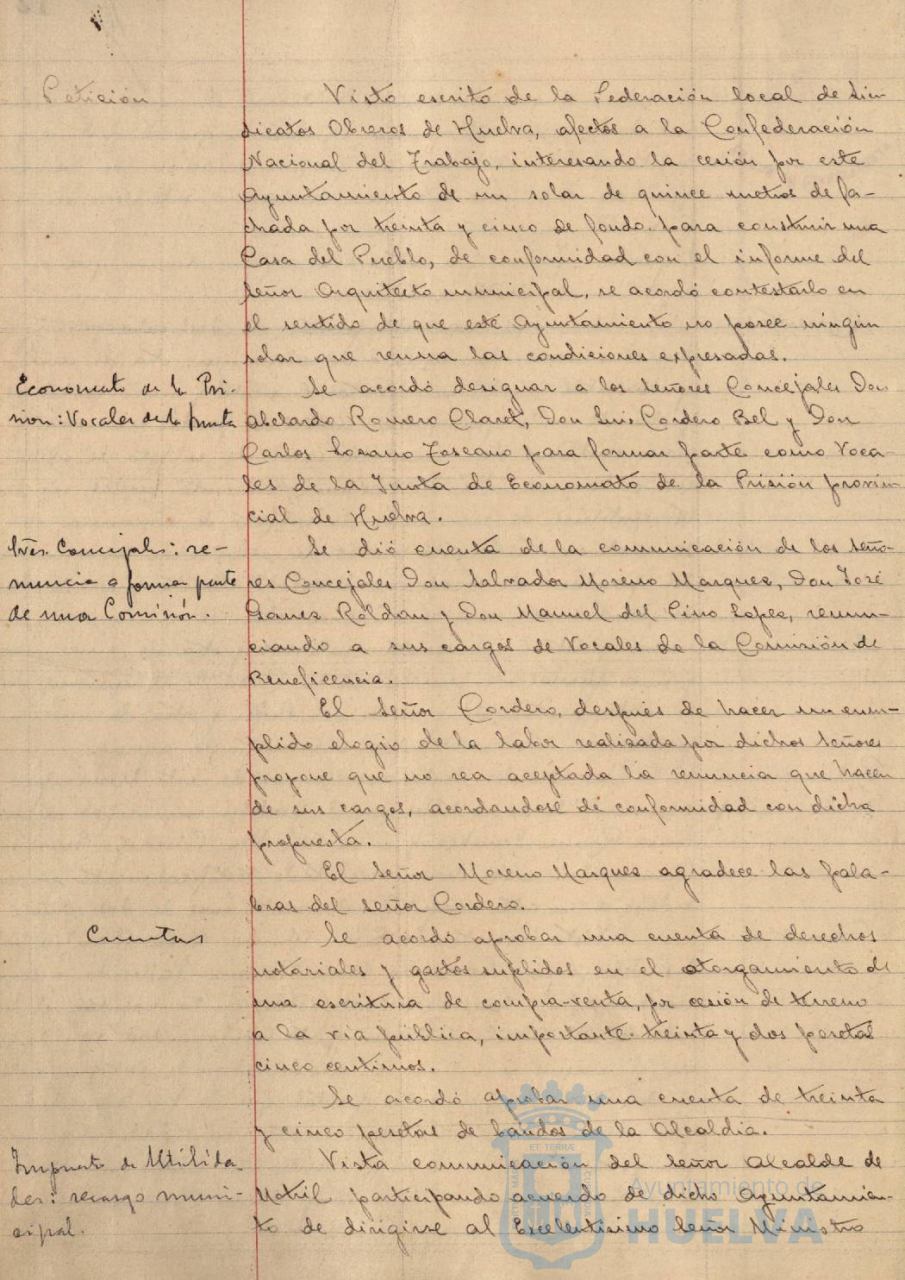 Petición
Visto escrito de la Federación local de Sin
dicatos Obreros de Huelva, afectos a la Confederación
Nacional del Trabajo, interesando la cesión por este
Ayuntamiento de un solar de quince metros de fa-
chada por treinta y cinco de fondo para construir una
Casa del Pueblo, de conformidad con el informe del
Señor Arquitecto municipal, se acordó contestarlo en
el sentido de que este Ayuntamiento no posee ningún
solar que reuna las condiciones expresadas.
Economato de la Pri-
sion: Vocales de la Junta
Se acordó designar a los Señores Concejales Don
Abelardo Romero Claret, Don Luis Cordero Bel y Don
Carlos Lozano Toscano para formar parte como Voca-
les de la Junta de Economato de la Prisión provin-
cial de Huelva.
Sres. Concejales: re-
nuncia a formar parte
de una Comisión.
Se dió cuenta de la comunicación de los Seño-
res Concejales Don Salvador Moreno Marquez, Don José
Roldán y Don Manuel del Pino Lopez, renun-
ciando a sus cargos de Vocales de la Comisión de
Beneficencia.
El Señor Cordero, después de hacer un cum-
plido elogio de la labor realizada por dichos Señores
propone que no sea aceptada la renuncia que hacen
de sus cargos, acordandose de conformidad con dicha
propuesta.
El Señor Moreno Marquez agradece las pala-
bras del señor Cordero.
Cuentas
Se acordó aprobar una cuenta de derechos
notariales y gastos suplidos en el otorgamiento de
una escritura de compra-venta, por cesión de terreno
a la via pública, importante treinta y dos pesetas
cinco centimos.
Se acordó aprobar una cuenta de treinta
y cinco pesetas de bandos de la Alcaldia.
Impuesto de Utilida-
des: recargo muni-
cipal.
Vista comunicación del Señor Alcalde de
Motril participando acuerdo de dicho Ayuntamien-
to de dirigirse al Excelentisimo Señor Ministro
Ayuntamiento de
HUELVA